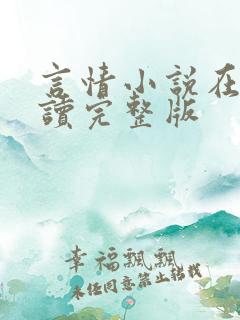 言情小說在
讀完整版
幸福飄飄
未经同意禁止转载